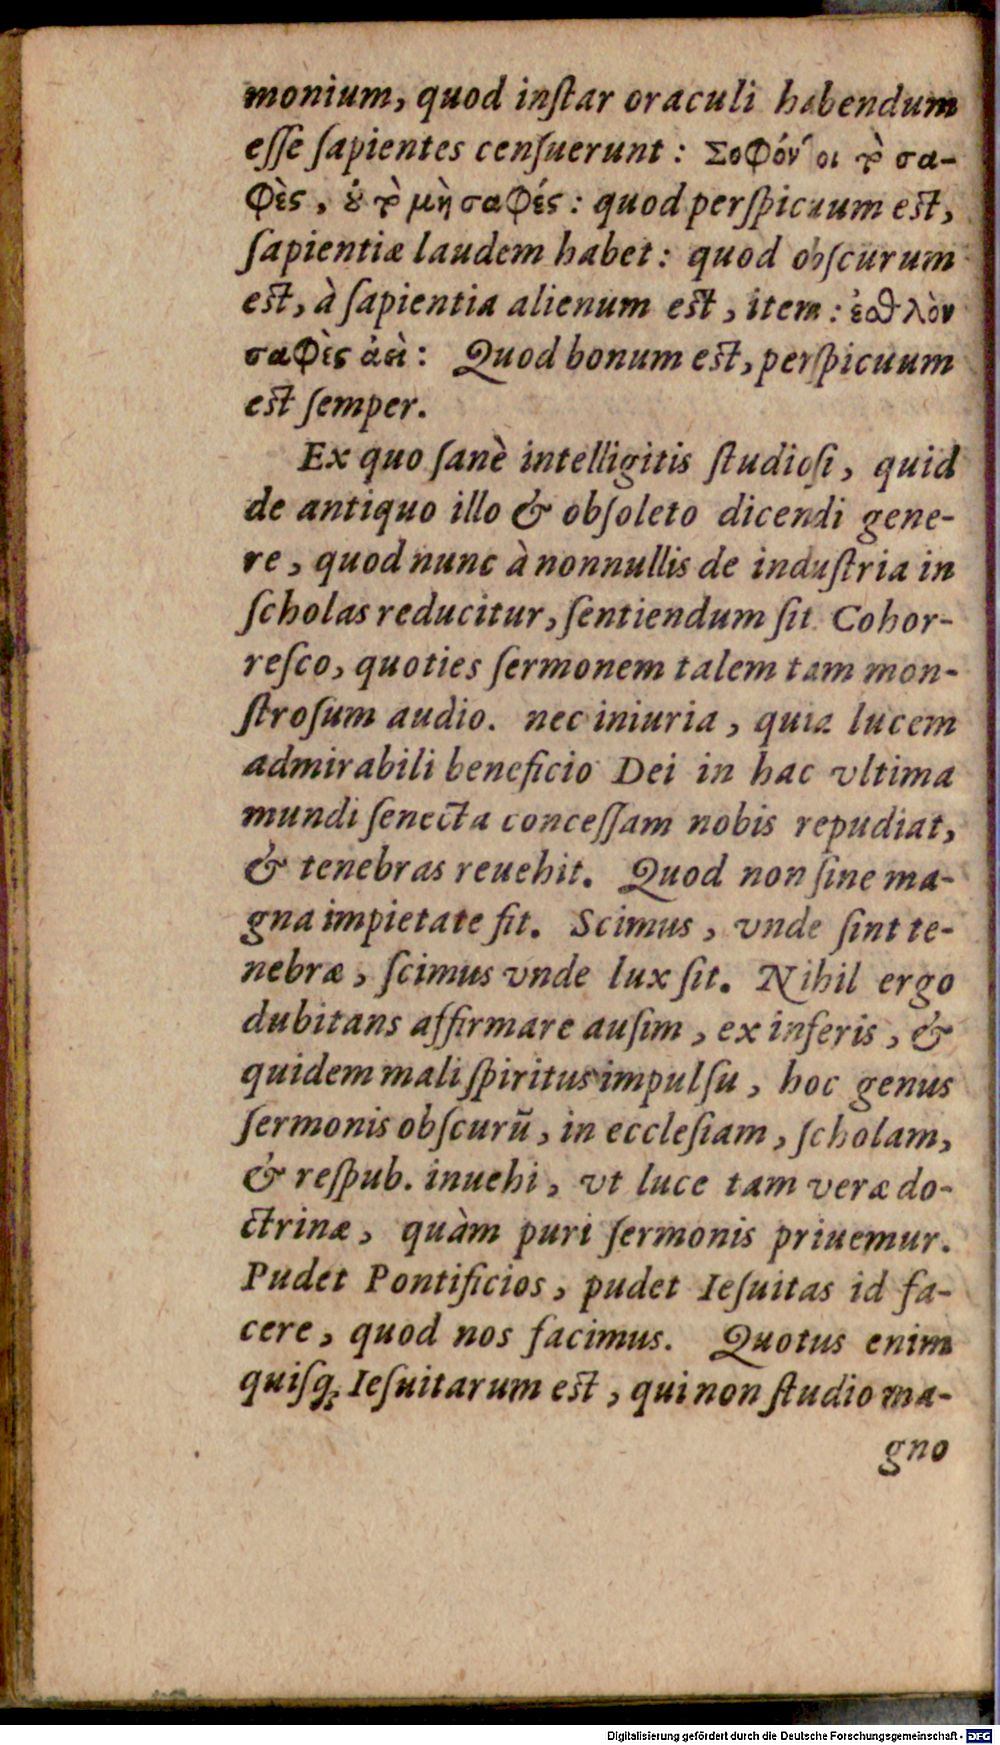 monium, quod inſtar oraculi habendum
eſſe ſapientes cenſuerunt: Σοφόν οι τὸ σα-
φὲς, ὀ τὸ μὴ σαφές: quod perſpicuum eſt,
ſapientiæ laudem habet: quod obſcurum
eſt, à ſapientia alienum eſt, item: ἐσθλὸν
σαφὲς ἀεὶ: Quod bonum eſt, perſpicuum
eſt ſemper.
Ex quo ſanè intelligitis ſtudioſi, quid
de antiquo illo & obſoleto dicendi gene-
re, quod nunc à nonnullis de induſtria in
ſcholas reducitur, ſentiendum ſit. Cohor-
reſco, quoties ſermonem talem tam mon-
ſtroſum audio. nec iniuria, quia lucem
admirabili beneficio Dei in hac vltima
mundi ſenecta conceſſam nobis repudiat,
& tenebras reuehit. Quod non ſine ma-
gna impietate fit. Scimus, vnde ſint te-
nebræ, ſcimus vnde lux ſit. Nihil ergo
dubitans affirmare auſim, ex inferis, &
quidem mali ſpiritus impulſu, hoc genus
ſermonis obſcurũ, in eccleſiam, ſcholam,
& reſpub. inuehi, vt luce tam veræ do-
ctrinæ, quàm puri ſermonis priuemur.
Pudet Pontificios, pudet Ieſuitas id fa-
cere, quod nos facimus. Quotus enim
quiſq; Ieſuitarum eſt, qui non ſtudio ma-
gno
Digitalisierung gefördert durch die Deutsche Forschungsgemeinschaft - DFG